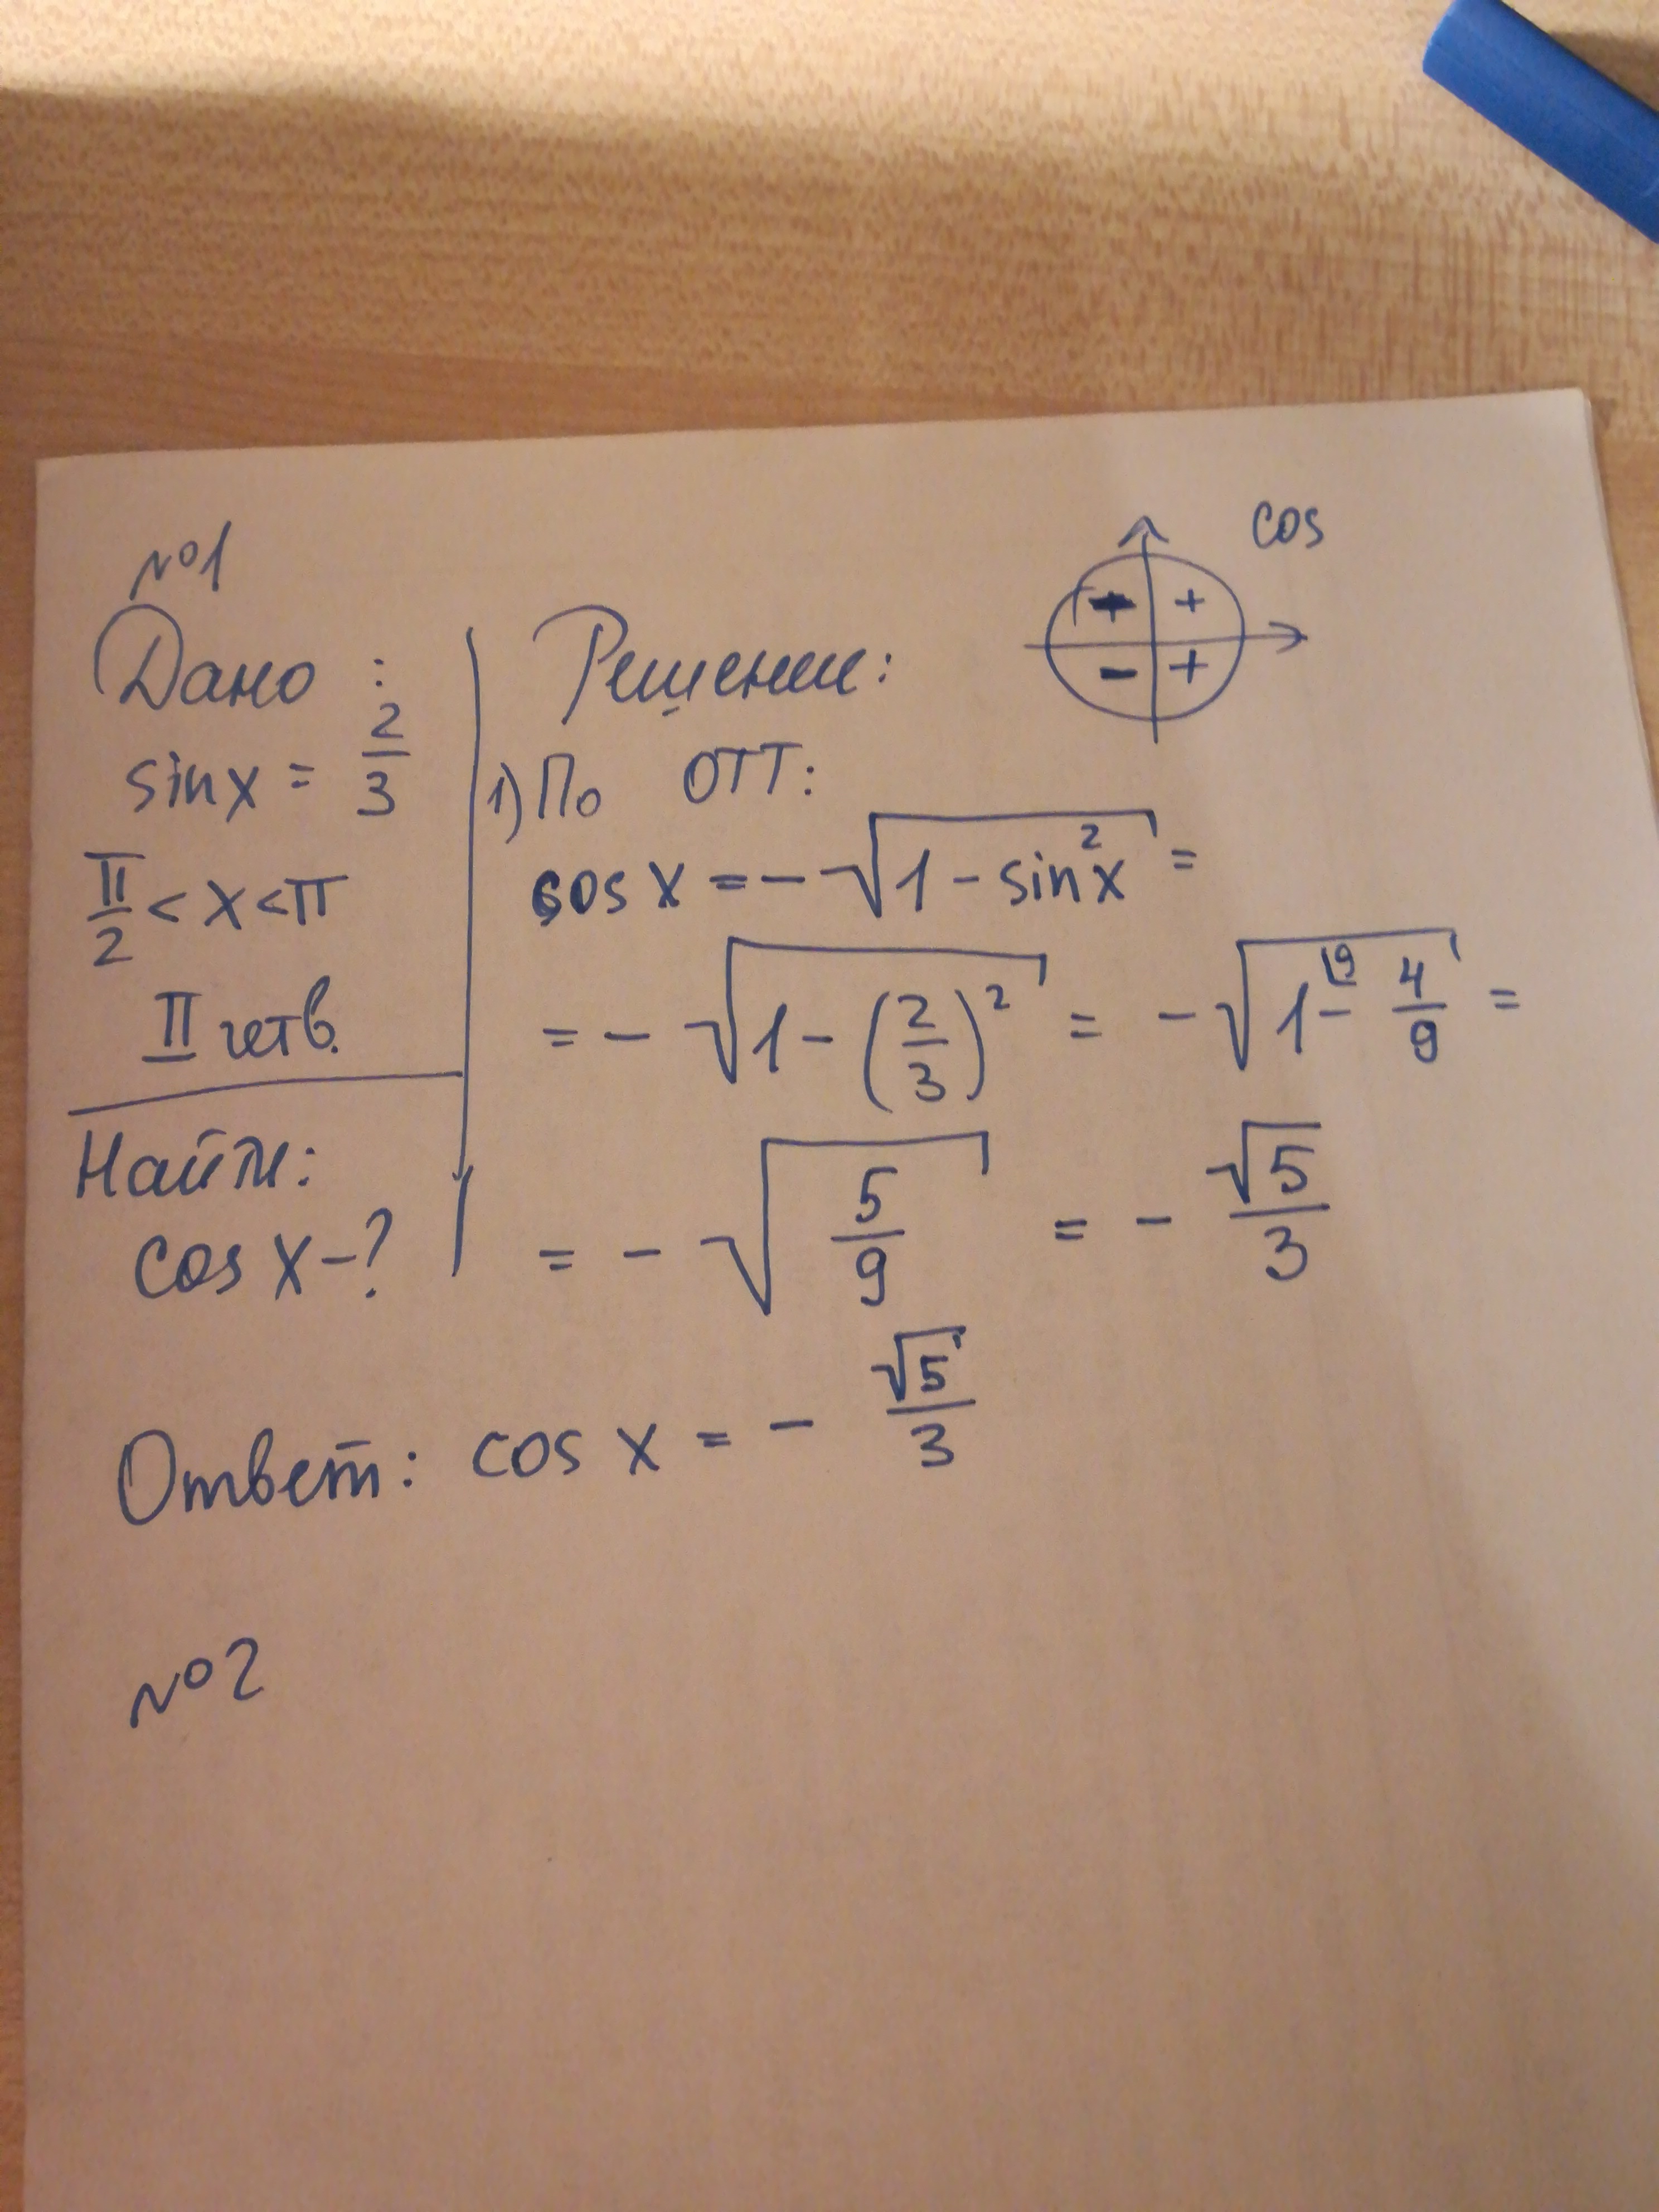 №1
cos
+ +
- +
Дано:
sin x = 2/3
π/2 < x < π
II четв.
Найти:
cos x - ?
Решение:
1) По ОТТ:
cos x = - √(1 - sin²x) =
= - √(1 - (2/3)²) = - √(1\9 - 4/9) =
= - √(5/9) = - √5/3
Ответ: cos x = - √5/3
№2